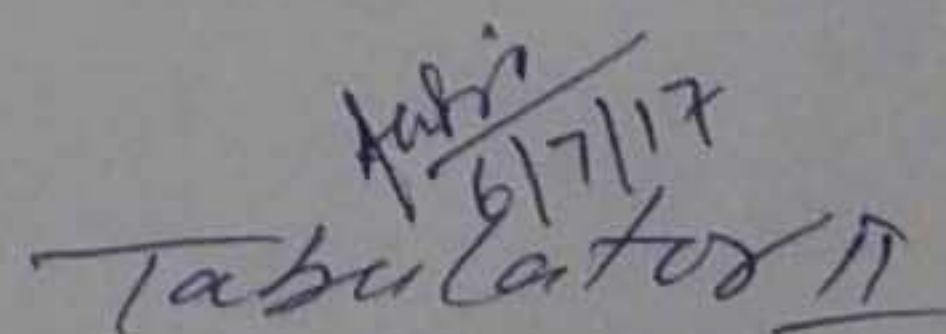 6/7/17
Tabulator II